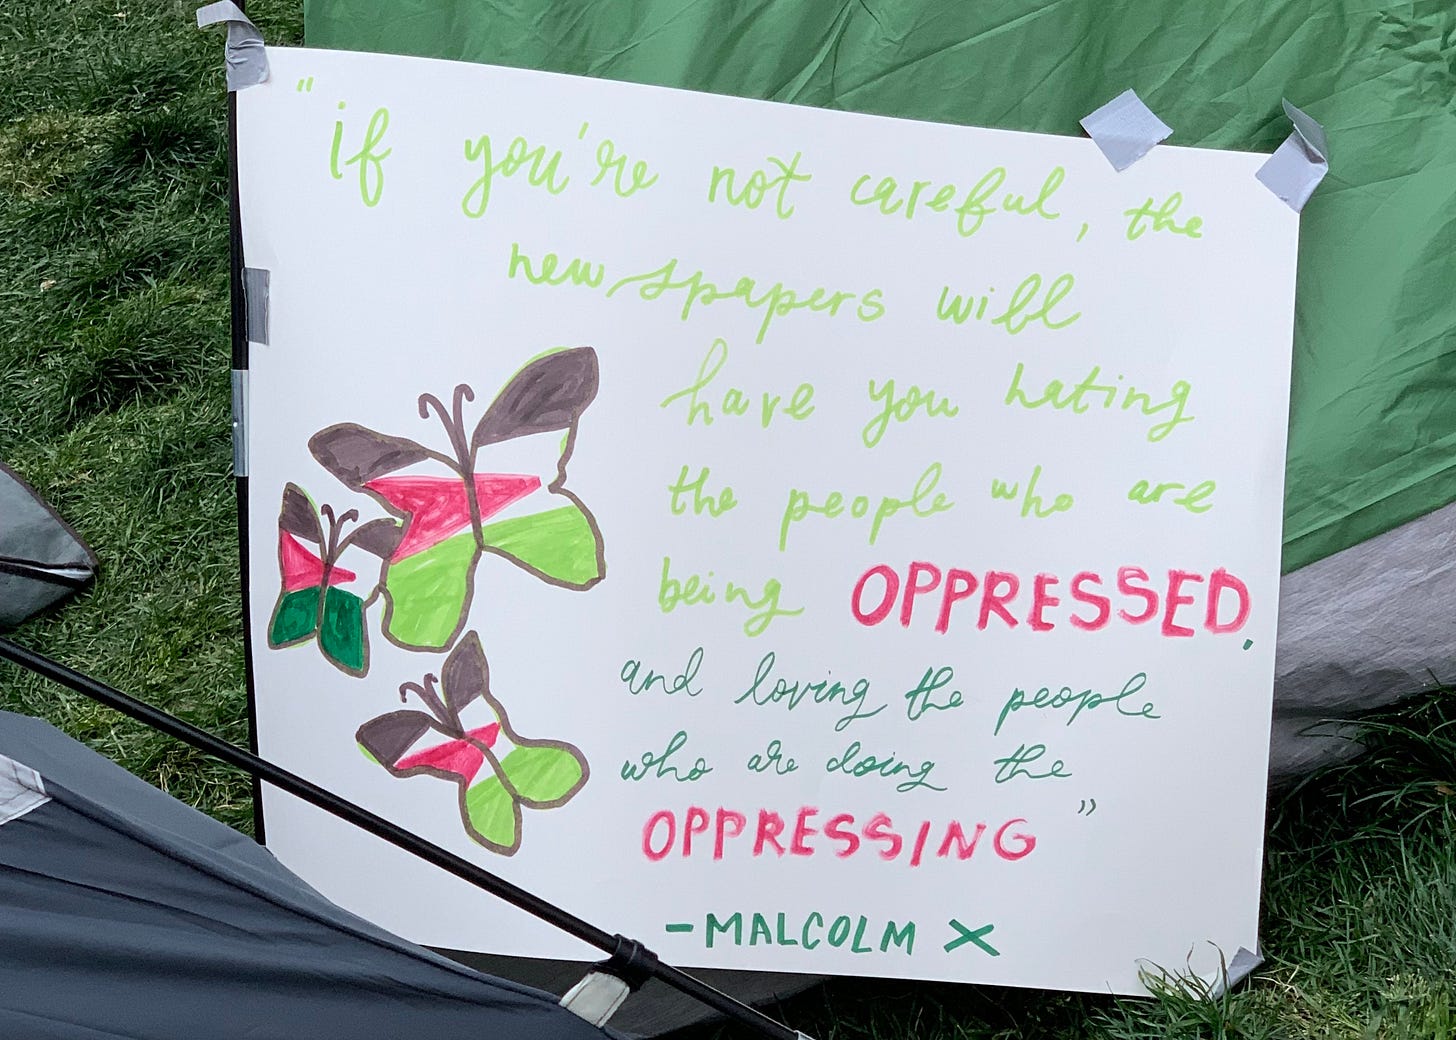 "if you're not careful, the
newspapers will
have you hating
the people who are
being OPPRESSED,
and loving the people
who are doing the
OPPRESSING"
-MALCOLM X